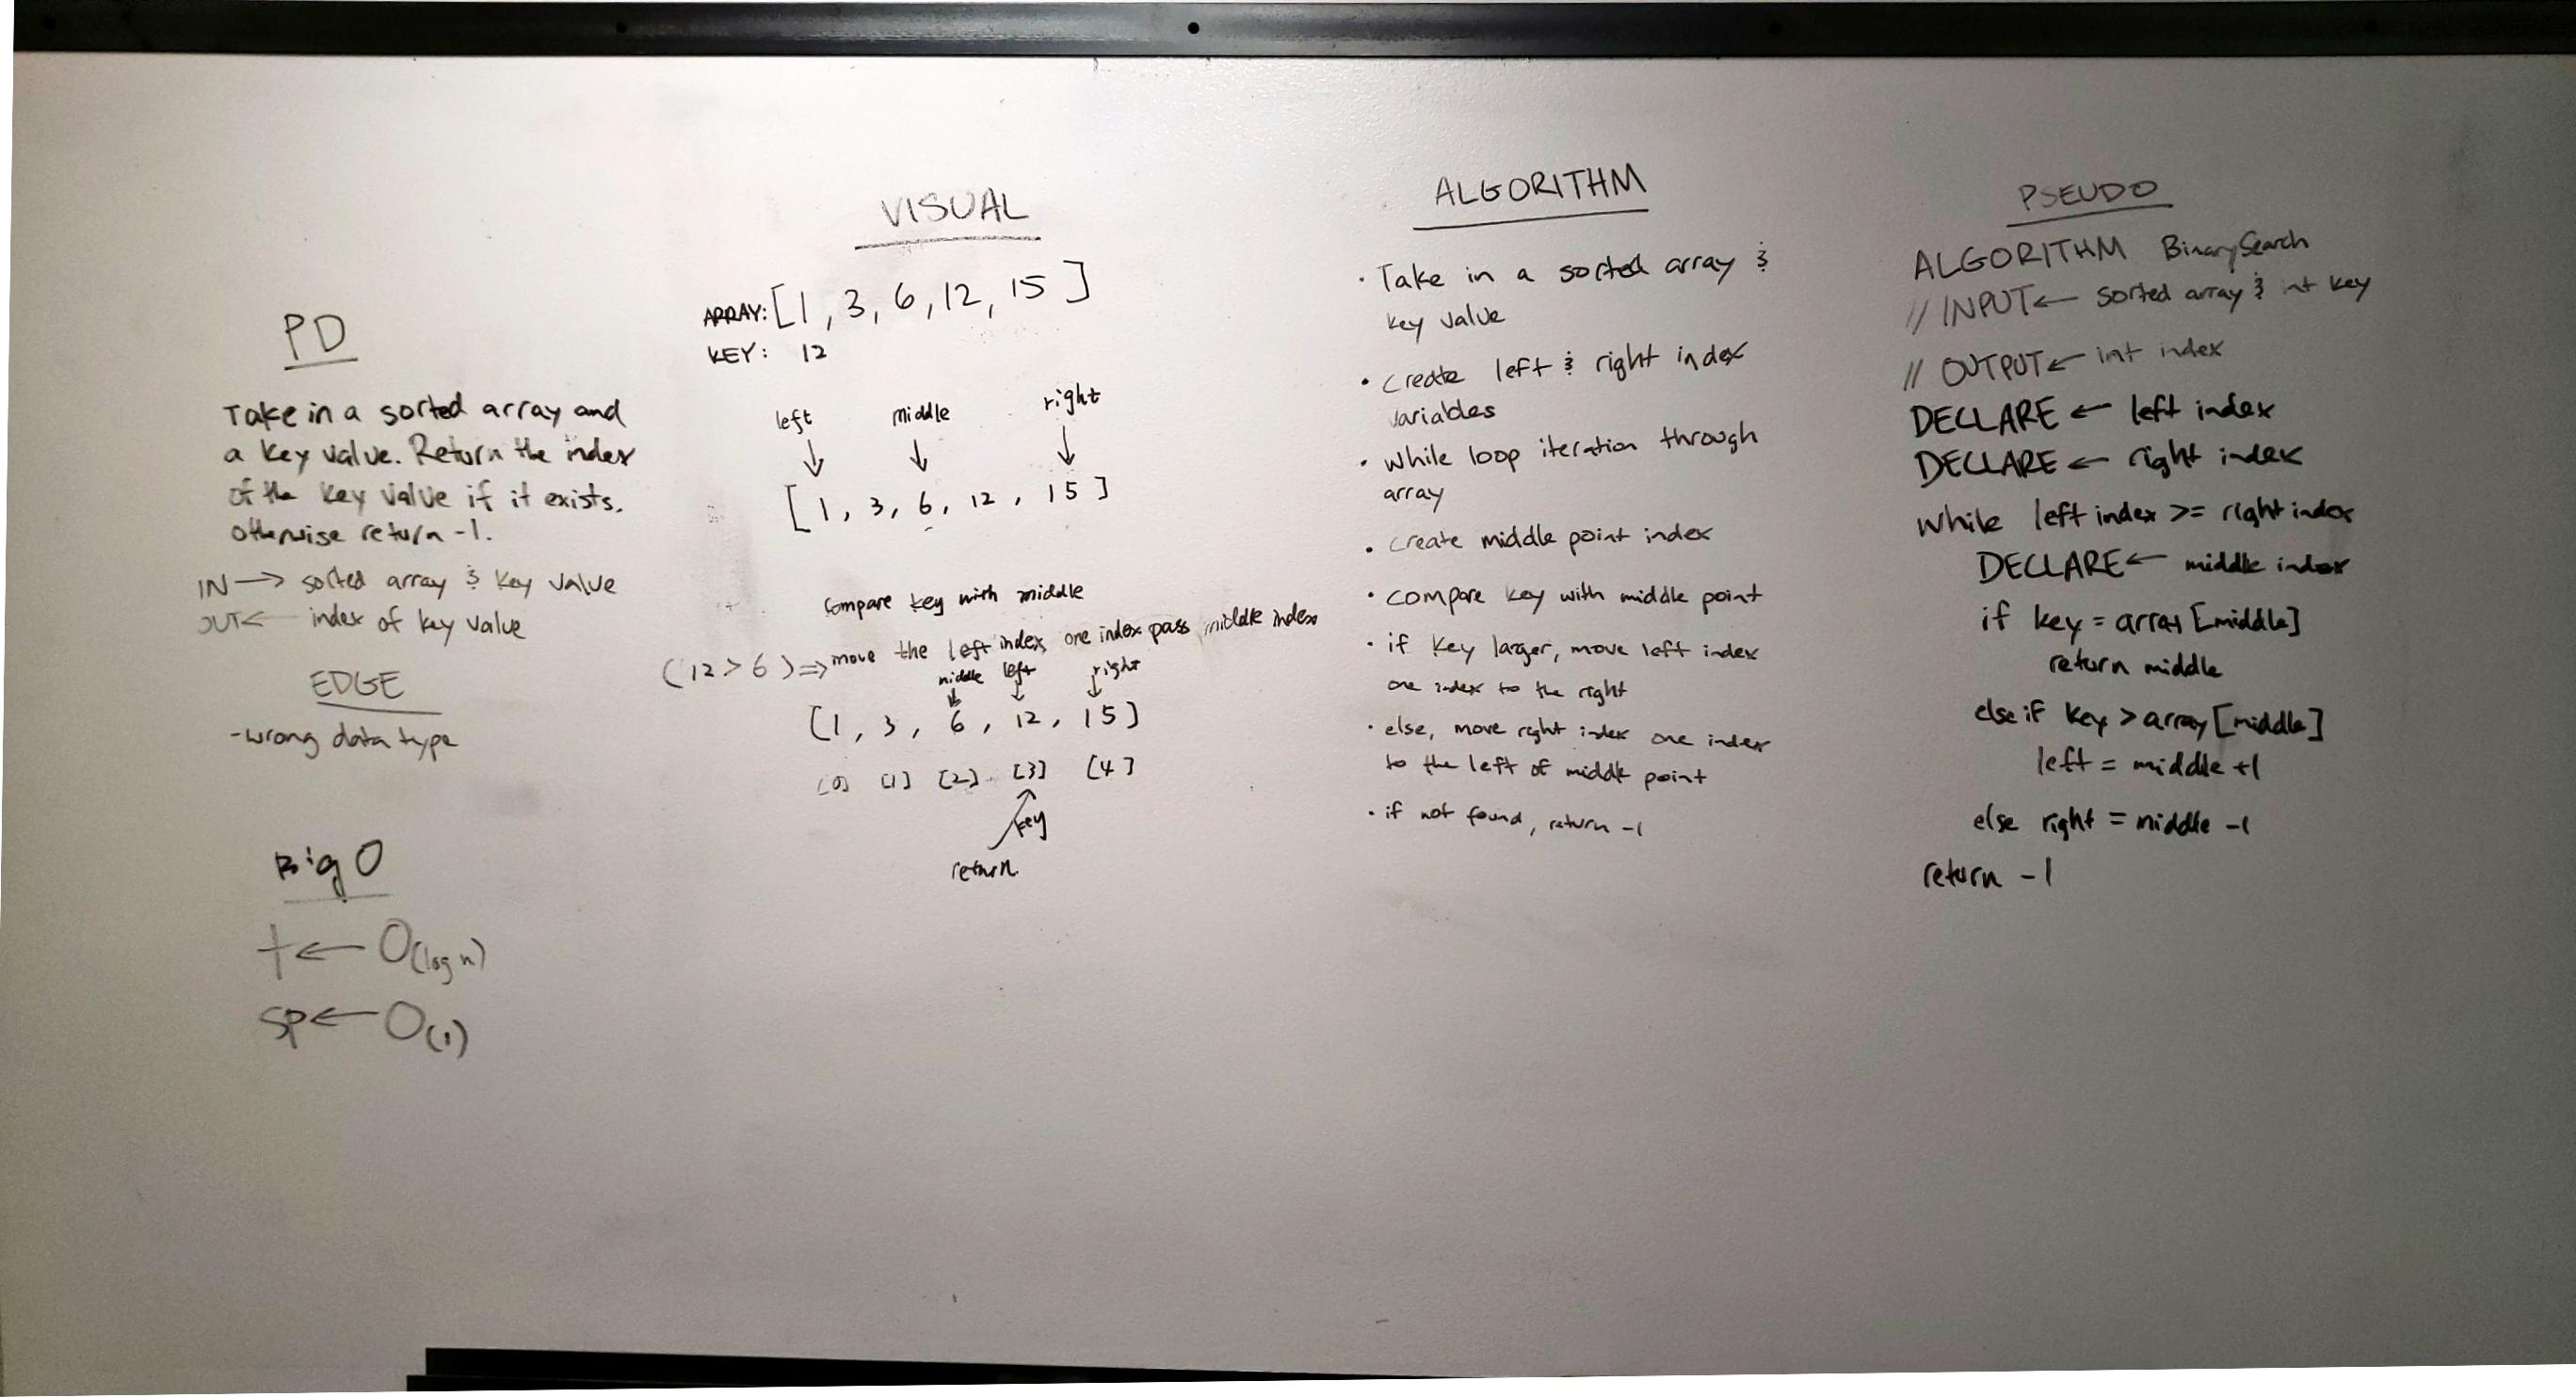 PD
Take in a sorted array and
a key value. Return the index
of the key value if it exists.
otherwise return -1.
IN → sorted array & key value
OUT ← index of key value
EDGE
- wrong data type
Big O
t ← O(log n)
sp ← O(1)
VISUAL
ARRAY: [1, 3, 6, 12, 15]
KEY: 12
left middle right
[1, 3, 6, 12, 15]
compare key with middle
(12 > 6) ⇒ move the left index one index pass middle index
middle left right
[1, 3, 6, 12, 15]
[0] [1] [2] [3] [4]
key
return
ALGORITHM
· Take in a sorted array &
key value
· create left & right index
variables
· while loop iteration through
array
· create middle point index
· compare key with middle point
· if key larger, move left index
one index to the right
· else, move right index one index
to the left of middle point
· if not found, return -1
PSEUDO
ALGORITHM BinarySearch
// INPUT ← sorted array & int key
// OUTPUT ← int index
DECLARE ← left index
DECLARE ← right index
while left index >= right index
DECLARE ← middle index
if key = array [middle]
return middle
else if key > array [middle]
left = middle +1
else right = middle -1
return -1